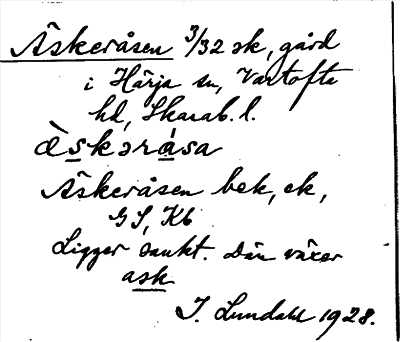 Äskeråsen 3/32 sk, gård
i Härja sn, Vartofta
hd, Skarab. l.
ἂskəråsa
Äskeråsen bek, ek,
GS, Kb
Ligger sankt. Där växer
ask
I. Lundahl 1928.